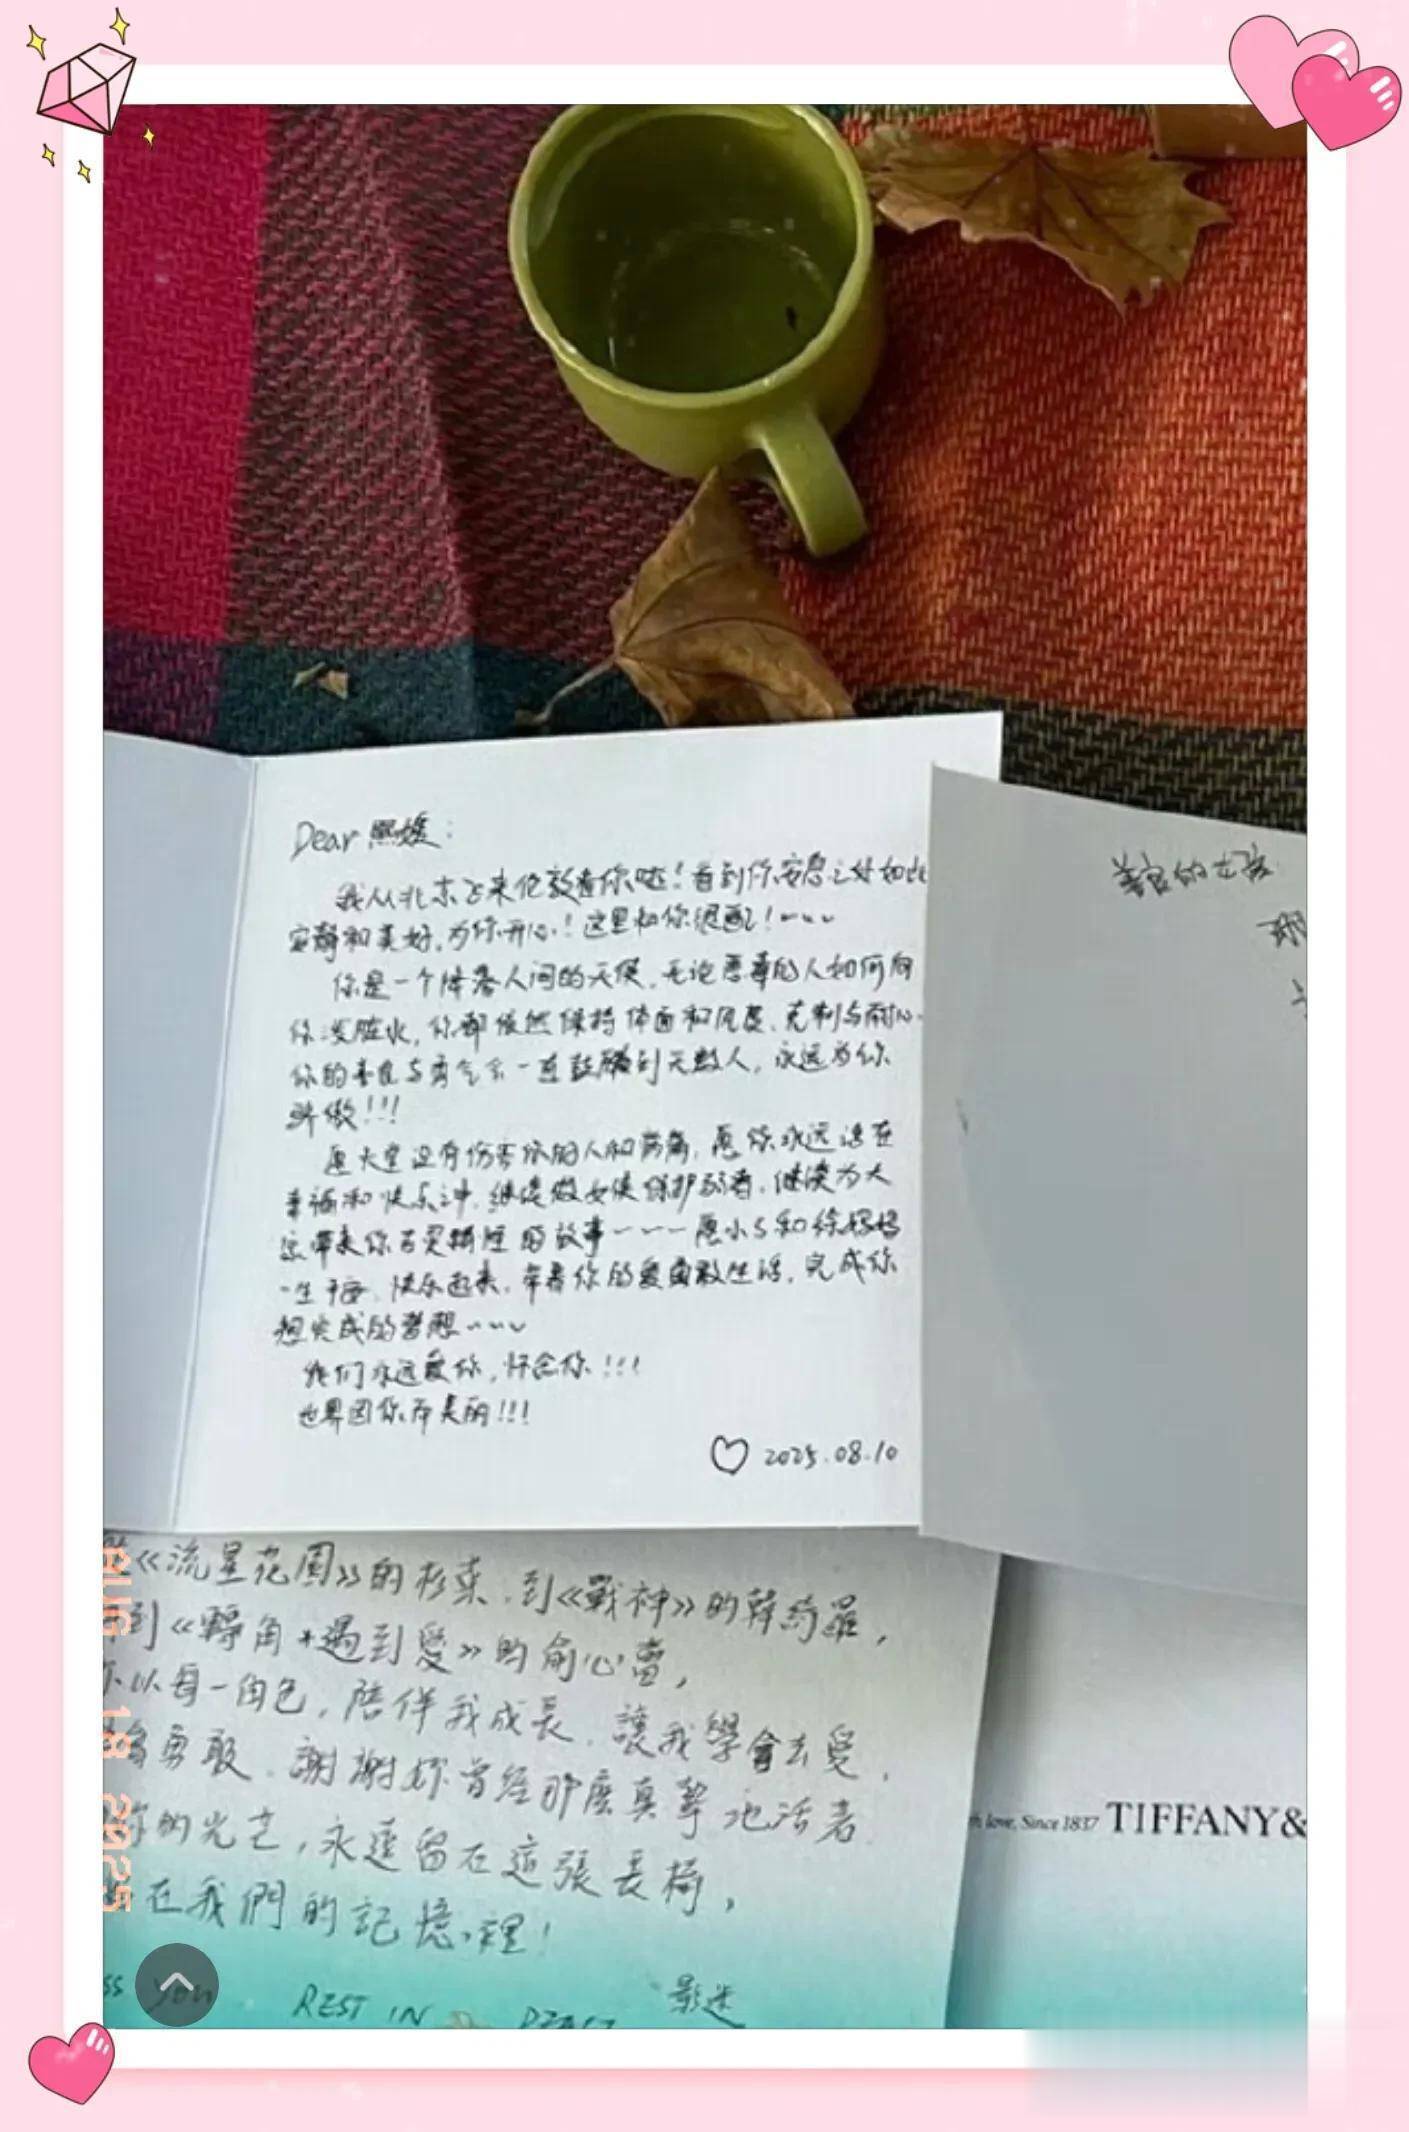 Dear 熙媛：
我从北京飞来伦敦看你啦！看到你安息之处如此
安静和美好，为你开心！这里和你很配！~~~
你是一个降落人间的天使，无论恶毒的人如何向
你泼脏水，你都依然保持体面和风度、克制与耐心。
你的善良与勇气会一直鼓舞到无数人，永远为你
骄傲！！！
愿天堂没有伤害你的人和病痛，愿你永远活在
幸福和快乐之中，继续做女侠保护弱者，继续为大
家带来你古灵精怪的故事~~~愿小S和徐妈妈
一生平安、快乐起来，带着你的爱勇敢生活，完成你
想完成的梦想~~~
我们永远爱你，怀念你！！！
世界因你而美丽！！！
♡ 2025.08.10
《流星花園》的杉菜，到《戰神》的韓約羅，
到《轉角*遇到愛》的俞心蕾，
以每一角色，陪伴我成長，讓我學會去愛，
勇敢。謝謝妳曾經那麼真摯地活著
的光芒，永遠留在這張長椅，
在我們的記憶裡！
you REST IN PEACE 影迷
love, Since 1837 TIFFANY&
AUG 18 2025